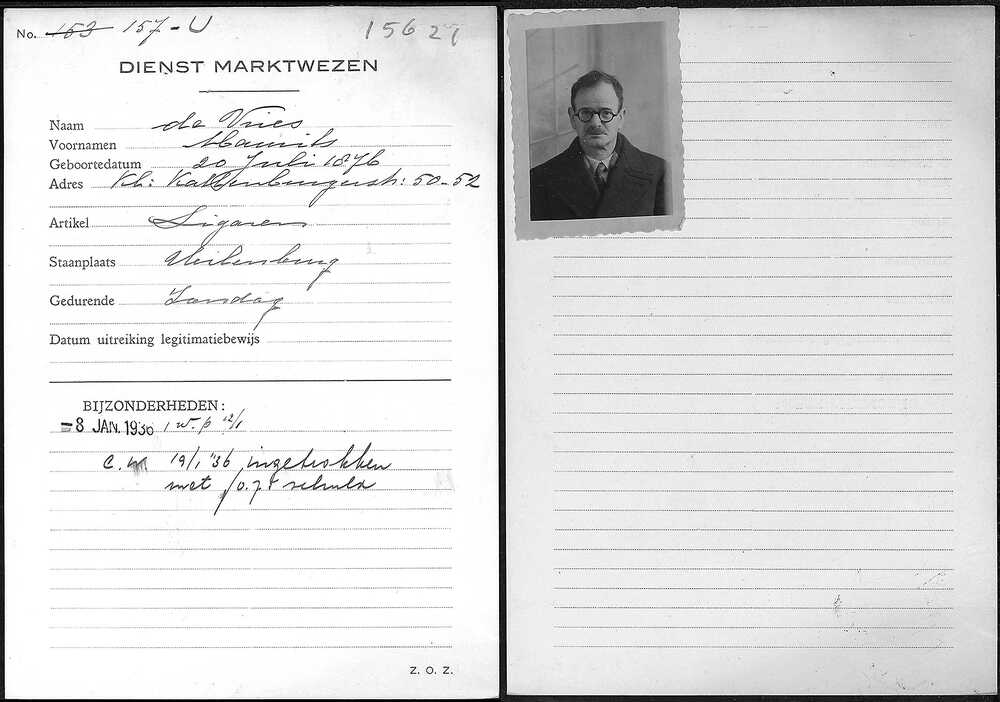 No. 153 157 - U 15627
DIENST MARKTWEZEN
Naam de Vries
Voornamen Maurits
Geboortedatum 20 Juli 1876
Adres Kl: Kattenburgerstr: 50-52
Artikel Sigaren
Staanplaats Uilenburg
Gedurende Zondag
Datum uitreiking legitimatiebewijs
BIJZONDERHEDEN:
-8 JAN. 1936 1 w. p 12/1
C. M 19/1 '36 ingetrokken
met schuld
Z. O. Z.